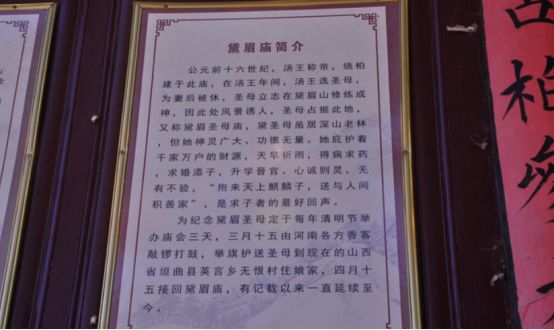 黛眉庙简介
公元前十六世纪，汤王称帝，绕柏
建于此庙，在汤王年间，汤王选圣母，
为妻后被休，圣母立志在黛眉山修炼成
神，因此处风景诱人，圣母占据此地，
又称黛眉圣母庙，黛圣母虽居深山老林
，但她神灵广大、功德无量。她庇护着
千家万户的财源，天旱祈雨，得病求药
，求婚添子，升学晋官、心诚则灵，无
有不验，“抱来天上麒麟子，送与人间
积善家”，是求子者的最好回声。
为纪念黛眉圣母定于每年清明节举
办庙会三天，三月十五由河南各方香客
敲锣打鼓，举旗护送圣母到现在的山西
省垣曲县英言乡无恨村住娘家，四月十
五接回黛眉庙，有记载以来一直延续至
今。
古柏